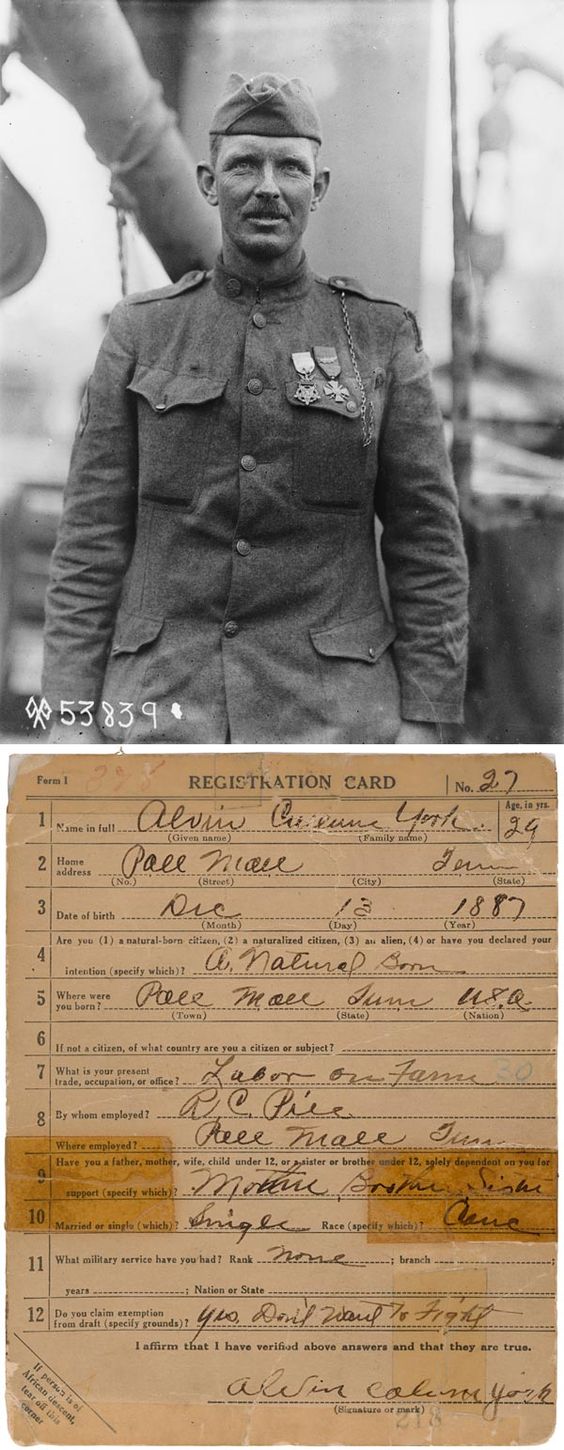 53839
Form 1 278 REGISTRATION CARD No. 27
1 Name in full Alvin Cullum York. Age, in yrs. 29
(Given name) (Family name)
2 Home address Pall Mall Tenn
(No.) (Street) (City) (State)
3 Date of birth Dec 13 1887
(Month) (Day) (Year)
4 Are you (1) a natural-born citizen, (2) a naturalized citizen, (3) an alien, (4) or have you declared your
intention (specify which)? A. Natural Born
5 Where were you born? Pall Mall Tenn U.S.A.
(Town) (State) (Nation)
6 If not a citizen, of what country are you a citizen or subject?
7 What is your present trade, occupation, or office? Labor on Farm 30
8 By whom employed? R. C. Pile
Where employed? Pall Mall Tenn
9 Have you a father, mother, wife, child under 12, or a sister or brother under 12, solely dependent on you for
support (specify which)? Mother Brother Sister
10 Married or single (which)? Single Race (specify which)?
11 What military service have you had? Rank None ; branch ;
years ; Nation or State
12 Do you claim exemption from draft (specify grounds)? Yes. Don't Want To Fight
I affirm that I have verified above answers and that they are true.
Alvin Cullum York
(Signature or mark)
218
If person is of
African descent,
tear off this
corner.